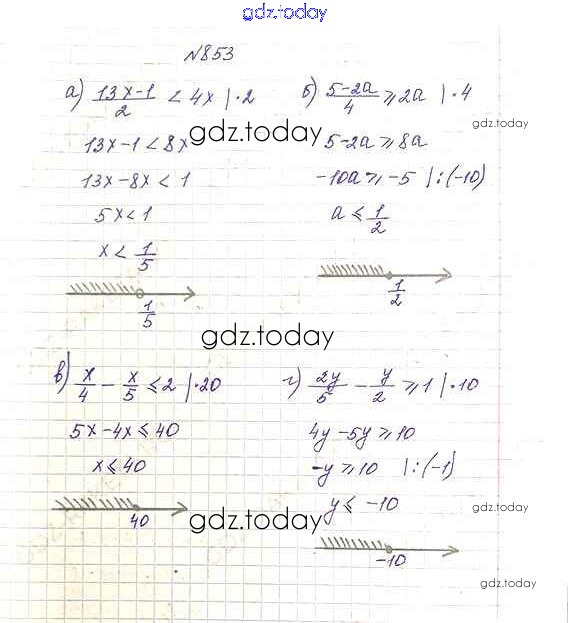 gdz.today
№853
а) 13x-1/2 < 4x |·2
13x-1 < 8x
13x-8x < 1
5x < 1
x < 1/5
1/5
б) 5-2a/4 ⩾ 2a |·4
gdz.today
5-2a ⩾ 8a
-10a ⩾ -5 |:(-10)
a ⩽ 1/2
1/2
gdz.today
gdz.today
в) x/4 - x/5 ⩽ 2 |·20
5x-4x ⩽ 40
x ⩽ 40
40
г) 2y/5 - y/2 ⩾ 1 |·10
4y-5y ⩾ 10
-y ⩾ 10 |:(-1)
y ⩽ -10
-10
gdz.today
gdz.today
gdz.today